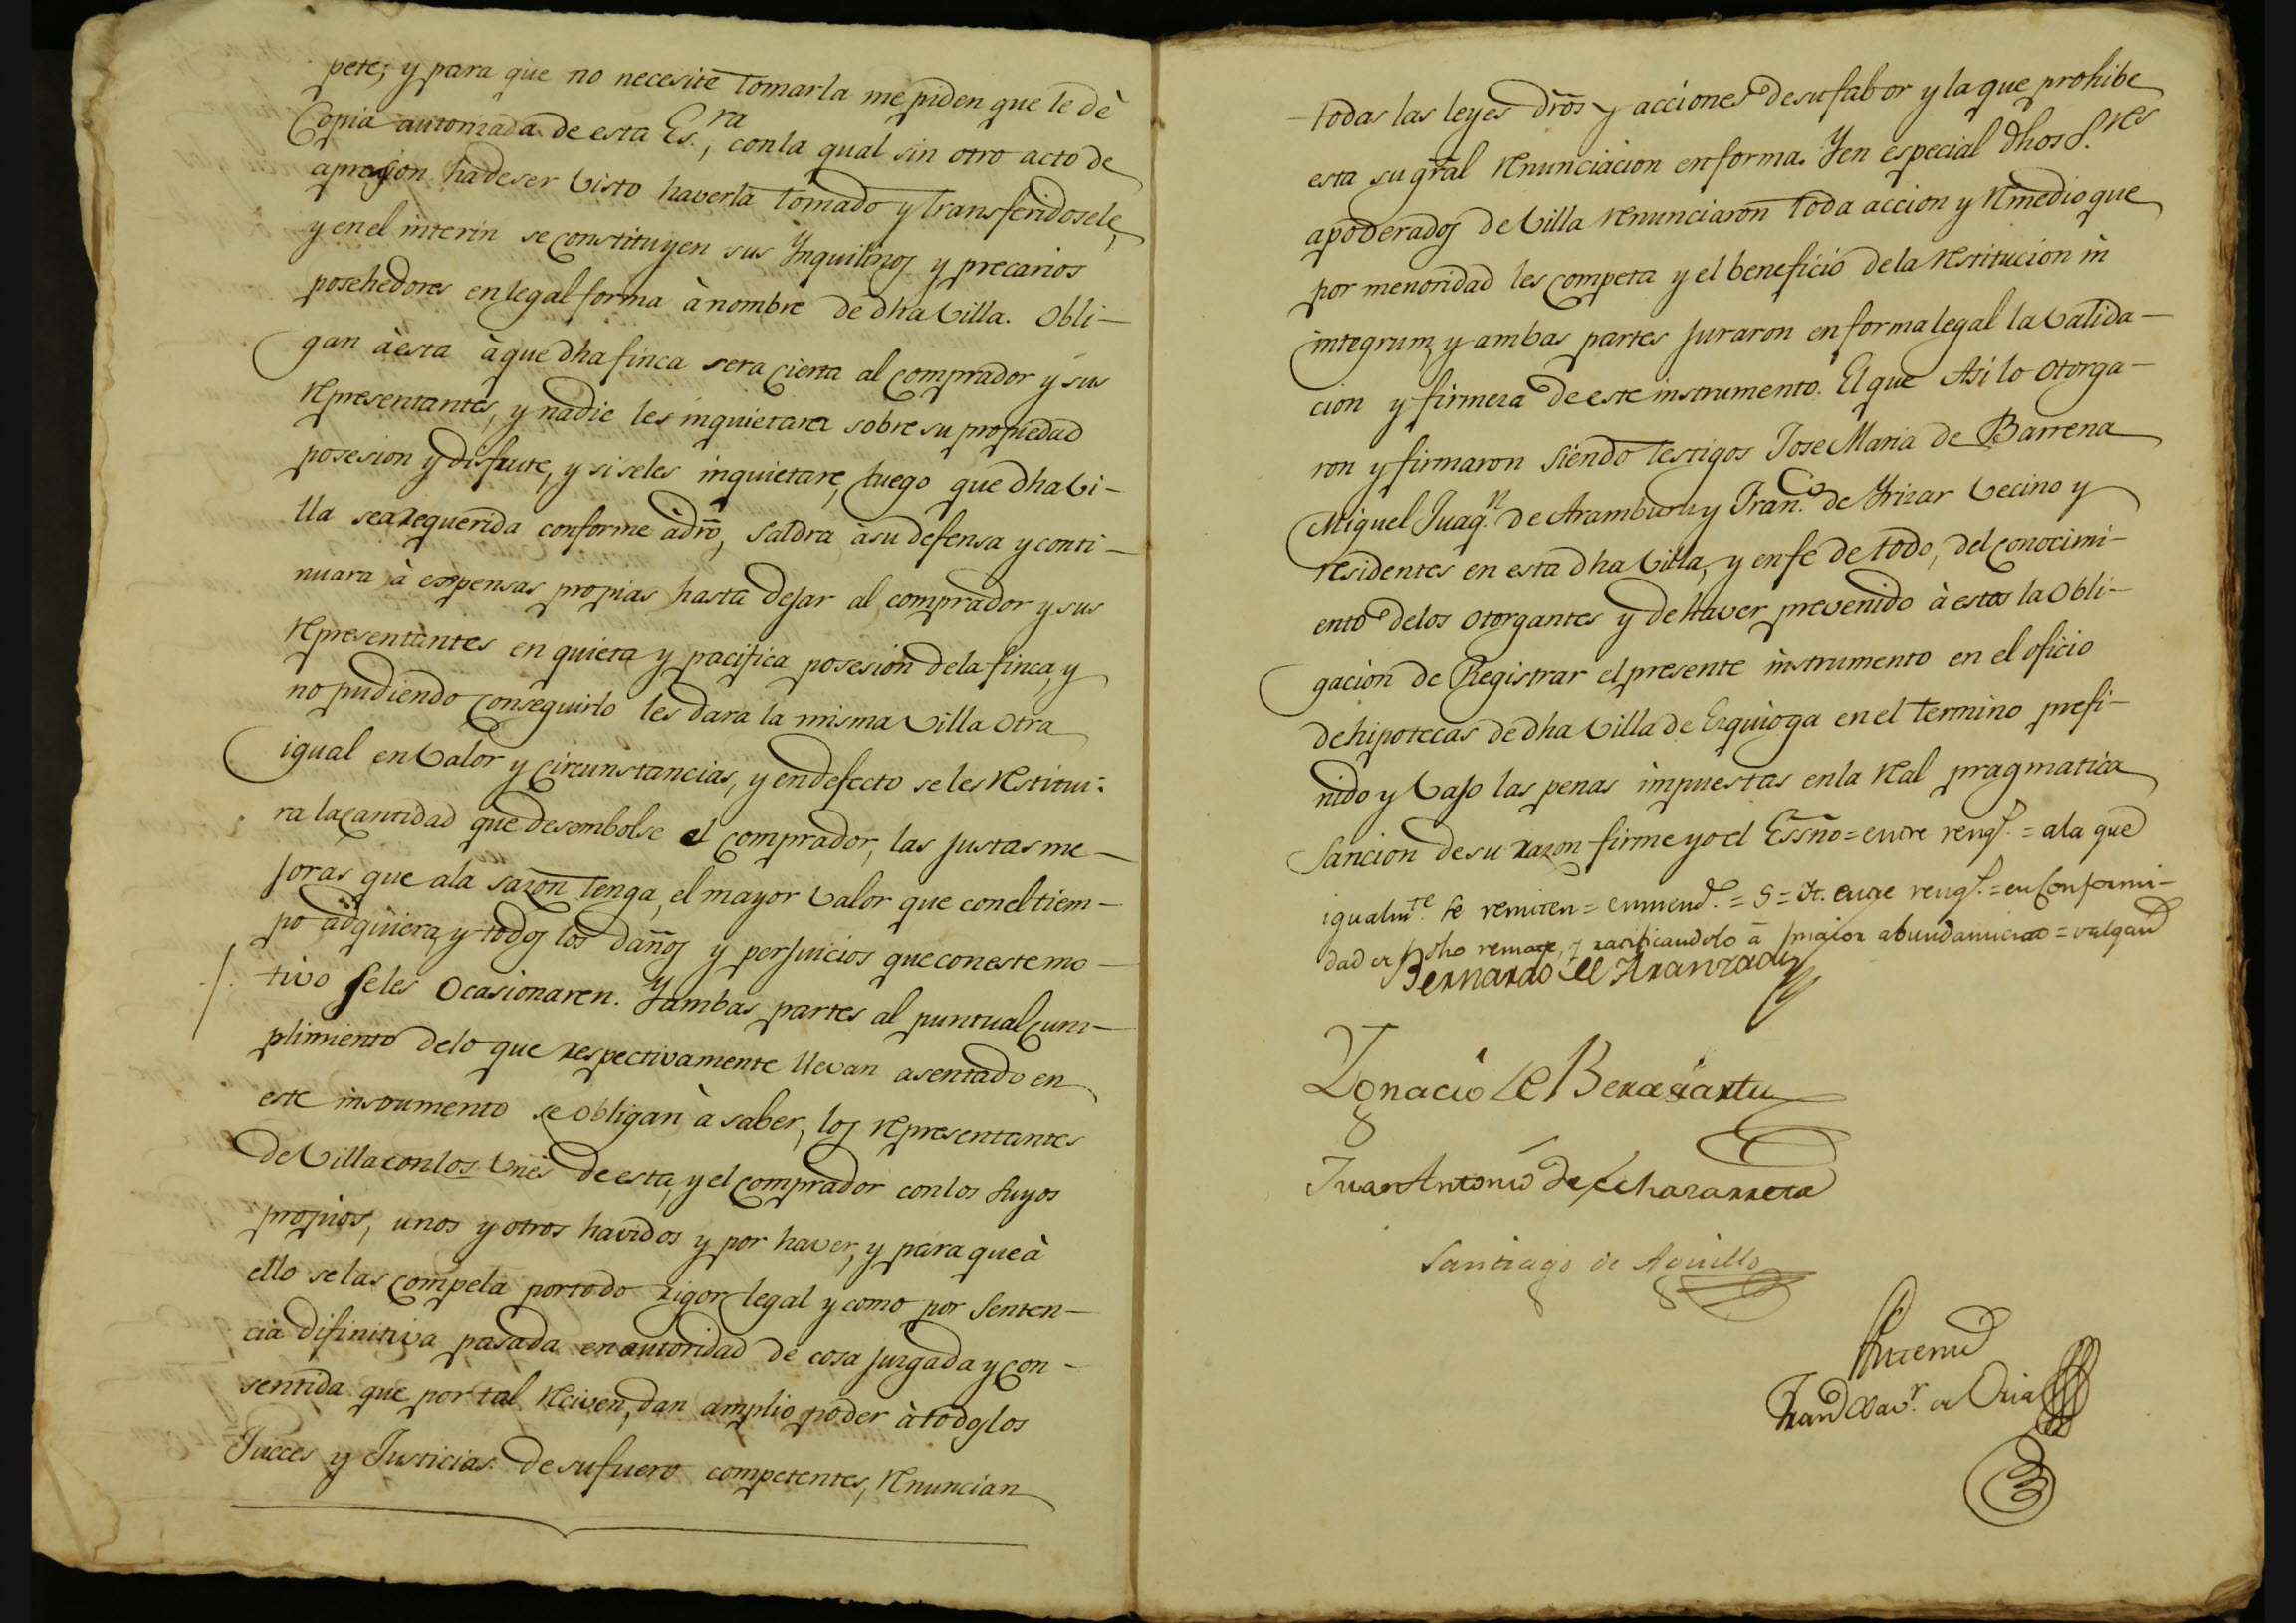 pete; y para que no necesite tomarla me piden que le dè
Copia autorizada de esta Es.ra, con la qual sin otro acto de
apresion ha de ser visto haverla tomado y transferidosele,
y en el interin se constituyen sus Ynquilinos y precarios
posehedores en legal forma à nombre de dha Villa. Obli-
gan à esta à que dha finca sera cierta al comprador y sus
representantes, y nadie les inquietara sobre su propiedad
posesion y disfrute, y si se les inquietare, luego que dha Vi-
lla sea requerida conforme à dro, saldra à su defensa y conti-
nuara à expensas propias hasta dejar al comprador y sus
representantes en quieta y pacifica posesion de la finca, y
no pudiendo conseguirlo les dara la misma Villa otra
igual en valor y circunstancias, y en defecto se les restitui-
ra la cantidad que desembolse el comprador, las justas me-
joras que ala sazon tenga, el mayor valor que con el tiem-
po adquiera, y todos los daños y perjuicios que con este mo-
tivo se les ocasionaren. Y ambas partes al puntual cum-
plimiento de lo que respectivamente llevan asentado en
este instrumento se obligan à saber, los representantes
de Villa con los vnes de esta, y el comprador con los suyos
propios, unos y otros havidos y por haver, y para que à
ello se las compela por todo rigor legal y como por senten-
cia difinitiva pasada en autoridad de cosa juzgada y con-
sentida que por tal reciven, dan amplio poder à todos los
Jueces y Justicias de su fuero competentes, renuncian
todas las leyes dros y acciones de su fabor y la que prohibe
esta su gral renunciacion en forma. Y en especial dhos S.res
apoderados de Villa renunciaron toda accion y remedio que
por menoridad les competa y el beneficio de la restitucion in
integrum, y ambas partes juraron en forma legal la valida-
cion y firmeza de este instrumento. El que Asi lo otorga-
ron y firmaron siendo testigos Jose Maria de Barrena
Miguel Juaq.n de Aramburu y Fran.co de Yrizar vecino y
residentes en esta dha Villa, y en fe de todo, del conocimi-
ento de los otorgantes y de haver prevenido à estos la obli-
gacion de Registrar el presente instrumento en el oficio
de hipotecas de dha Villa de Ezquioga en el termino prefi-
nido y vajo las penas impuestas en la Real pragmatica
sancion de su razon firme yo el Essno = entre rengs. = ala que
igualm.te se remiten = enmend.o = S = It. entre rengs. = en conformi-
dad de dho remate, y ratificandolo à maior abundamiento = valgan
Bernardo de Aranzadi
Ygnacio de Berasiartu
Juan Antonio de Echazarreta
Santiago de Aguillo
Antemi
Fran.co Xav.r de Oria